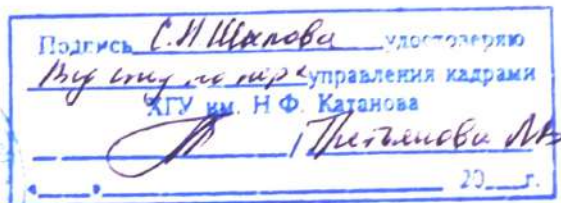 Подпись С.Н Шилова удостоверяю
Вед спец по перс управления кадрами
ХГУ им. Н.Ф. Катанова
/
"___"___ 20___г.